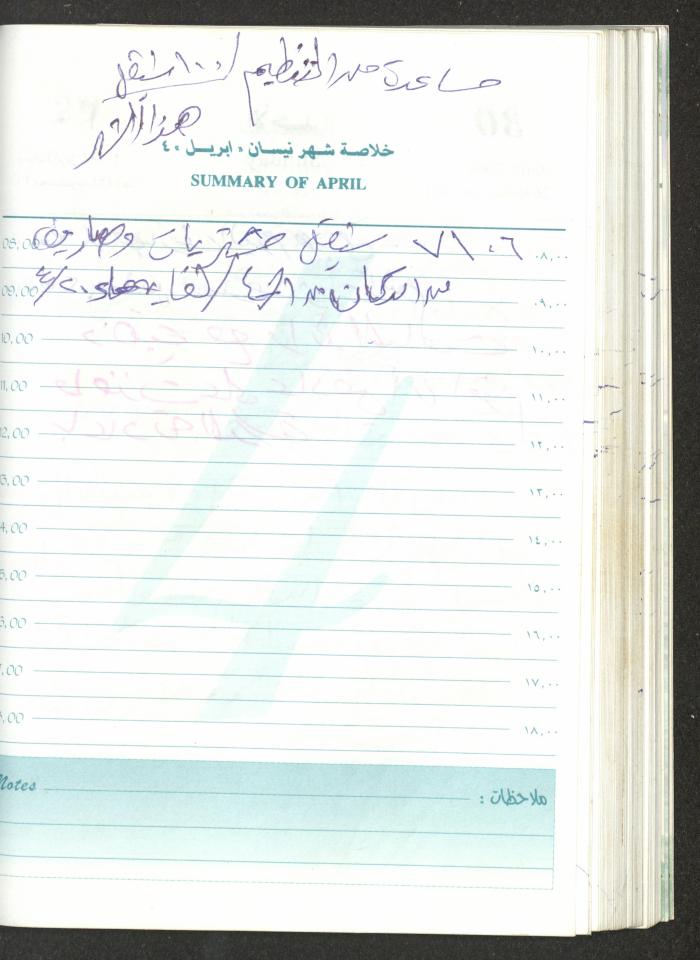 مساعدة من التنظيم / ١٠٠ شيقل
هذا الشهر
خلاصة شهر نيسان « ابريل » ٤
SUMMARY OF APRIL
٧١٠٦ شيقل مشتريات ومصاريف
08,00 ٠٨,٠٠
من الدكان من / لغاية ٤/٢٠
09,00 ٠٩,٠٠
10,00 ١٠,٠٠
11,00 ١١,٠٠
12,00 ١٢,٠٠
3,00 ١٣,٠٠
4,00 ١٤,٠٠
5,00 ١٥,٠٠
6,00 ١٦,٠٠
7,00 ١٧,٠٠
8,00 ١٨,٠٠
Notes ملاحظات :